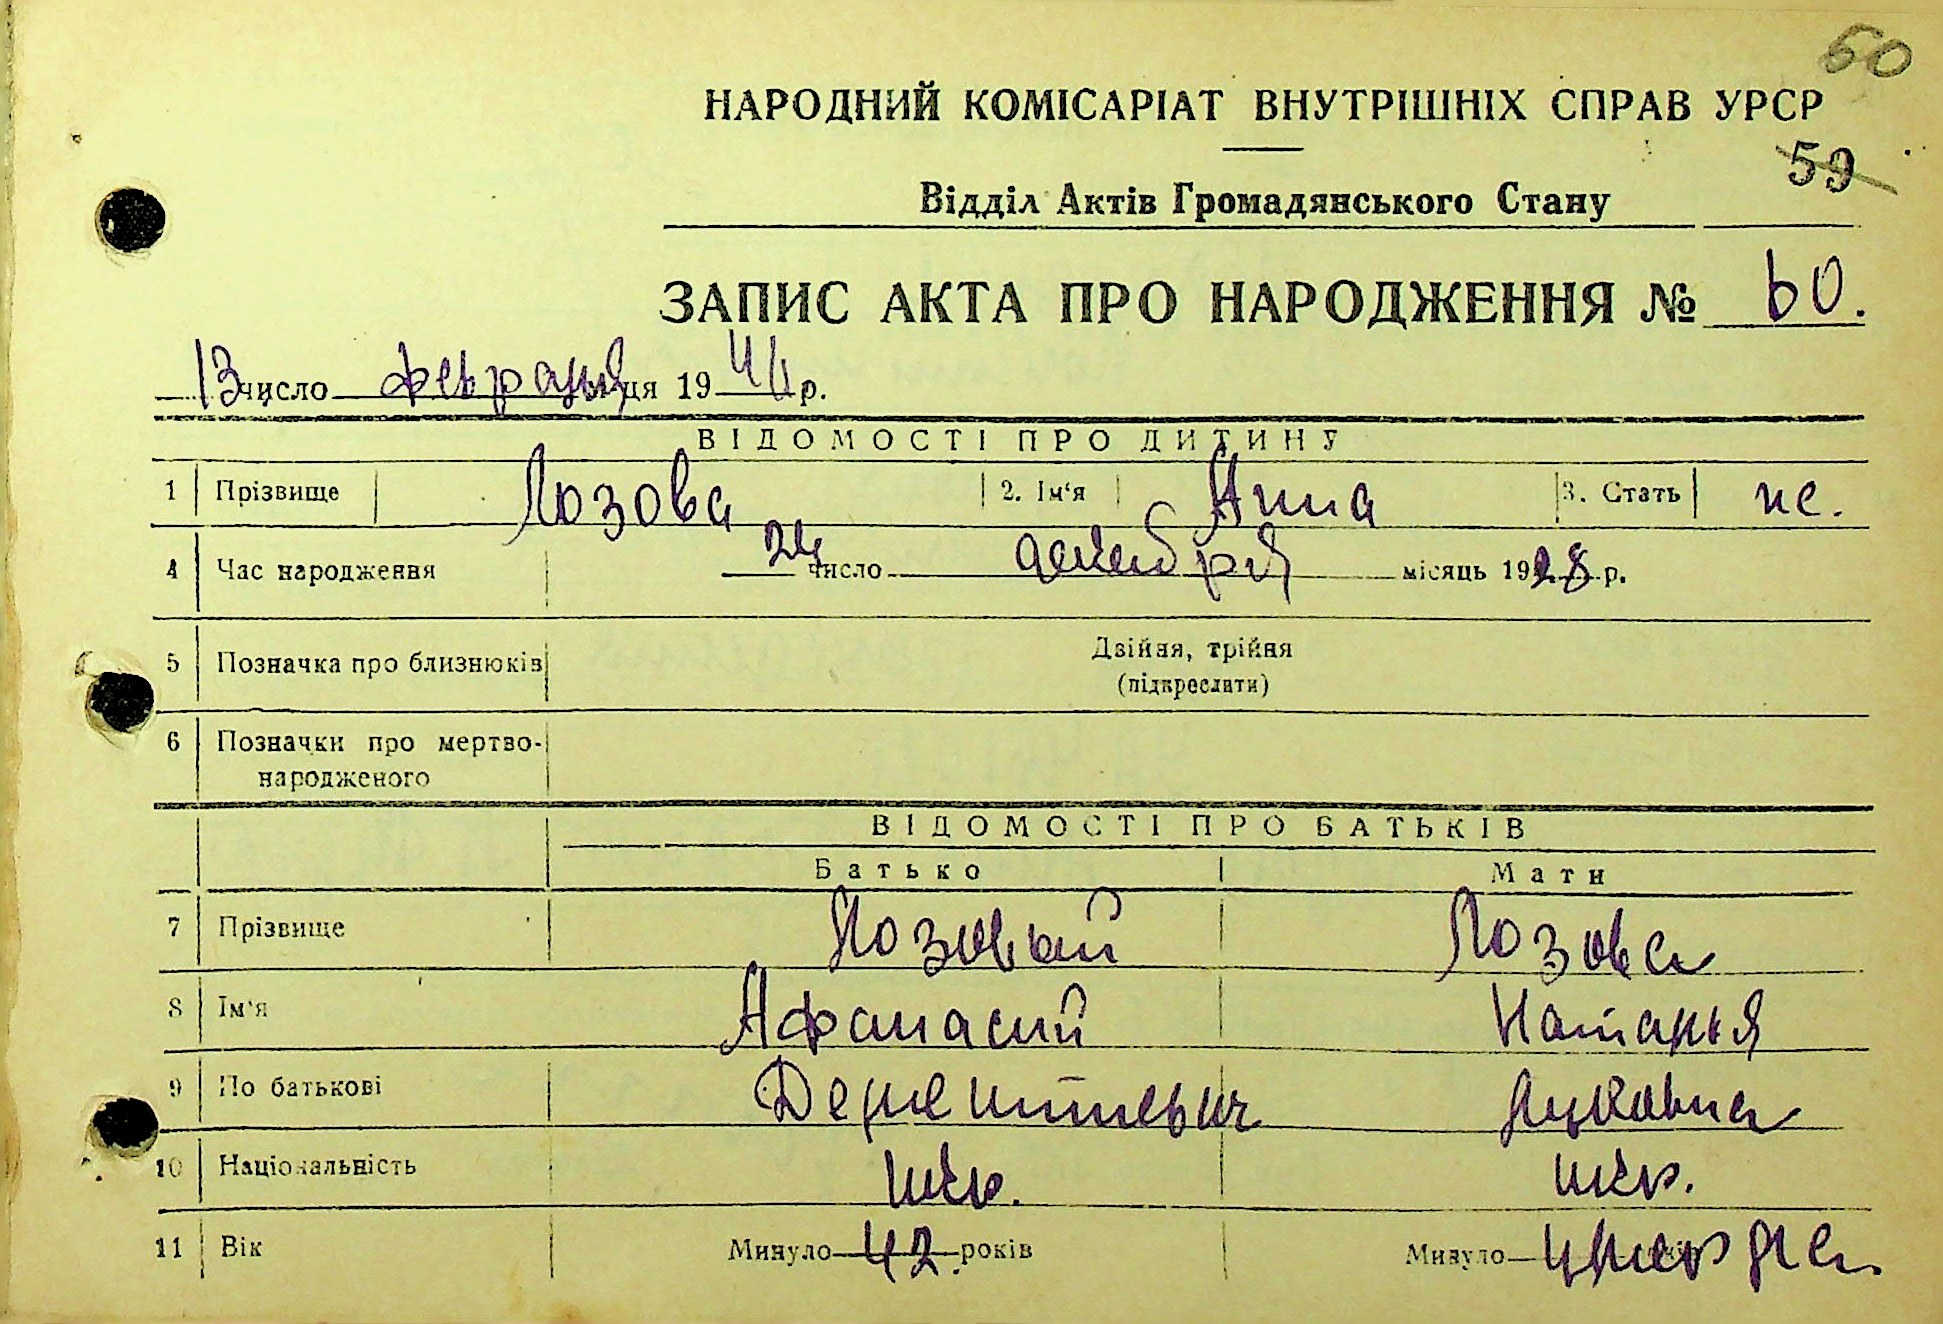 60
НАРОДНИЙ КОМІСАРІАТ ВНУТРІШНІХ СПРАВ УРСР
59
Відділ Актів Громадянського Стану
ЗАПИС АКТА ПРО НАРОДЖЕННЯ № 60.
13 число февраля місяця 1940 р.
ВІДОМОСТІ ПРО ДИТИНУ
1 Прізвище Лозова 2. Ім'я Анна 3. Стать ж.
4 Час народження 24 число декабря місяць 1928 р.
5 Позначка про близнюків Двійня, трійня
(підкреслити)
6 Позначки про мертво-
народженого
ВІДОМОСТІ ПРО БАТЬКІВ
Батько Мати
7 Прізвище Лозовый Лозова
8 Ім'я Афанасий Наталья
9 По батькові Дементиевич Луковна
10 Національність укр. укр.
11 Вік Минуло 42 років Минуло умерла